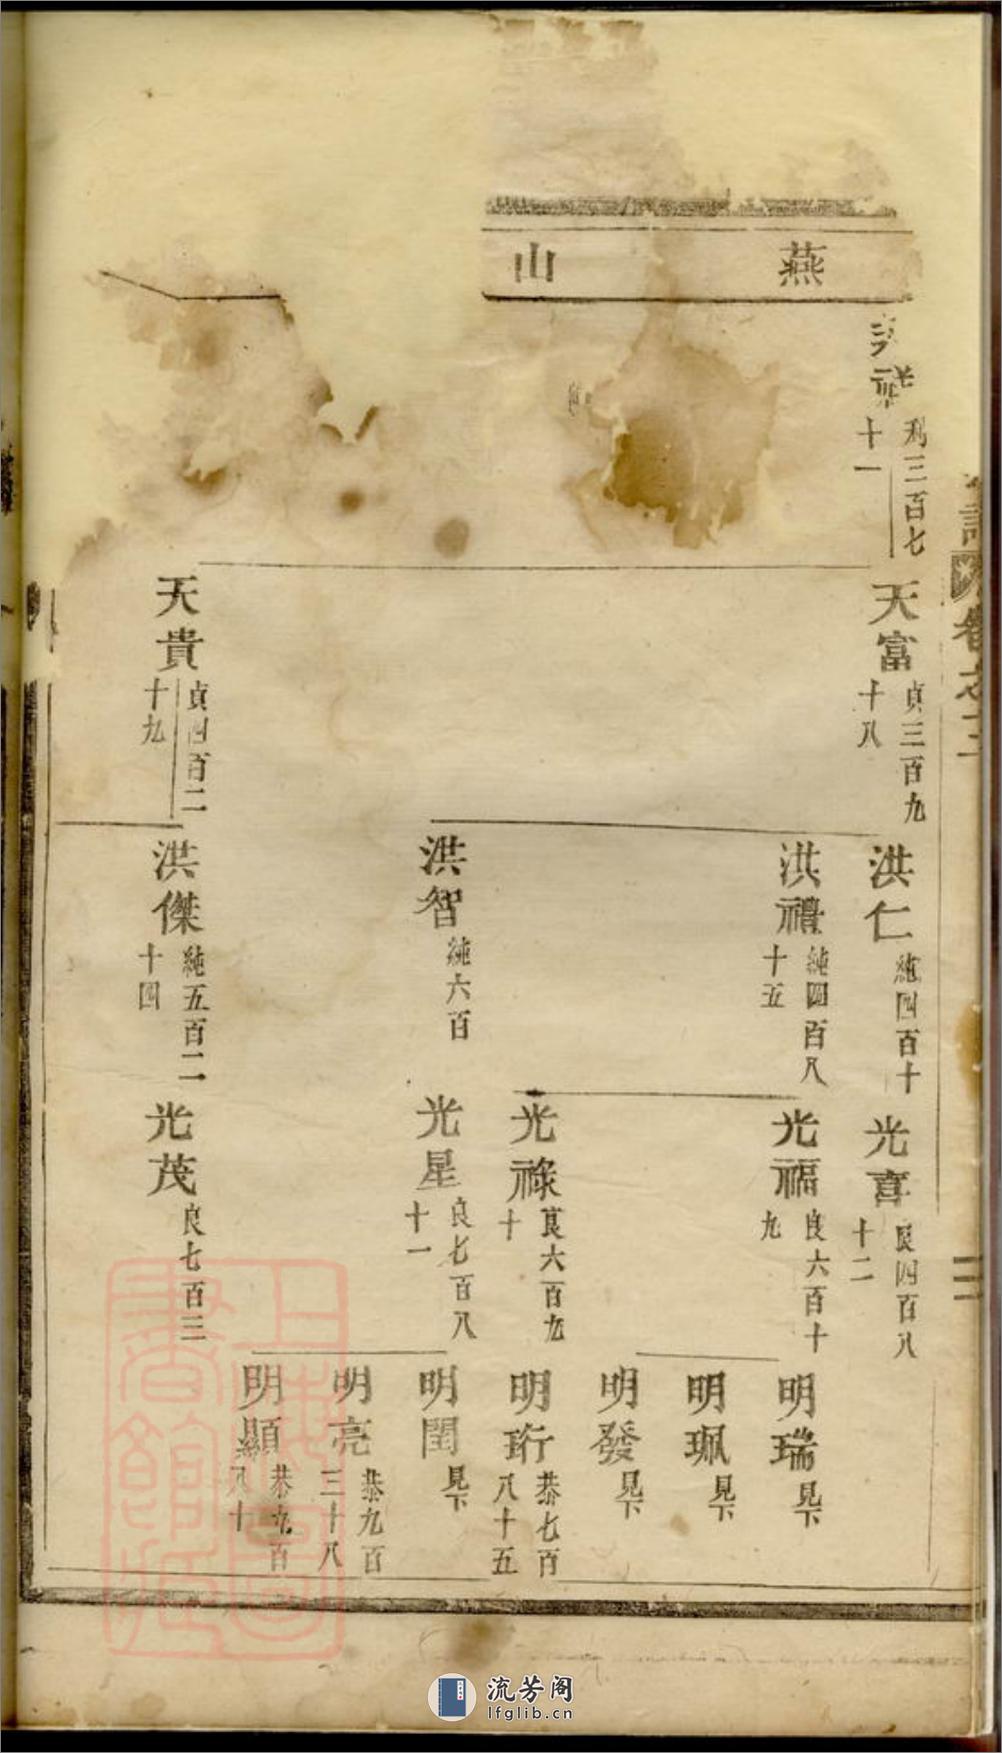 燕山
祥 利三百七十一
天富 貞三百九十八
天貴 貞四百二十九
洪仁 純四百十
洪禮 純四百八十五
洪智 純六百
洪傑 純五百二十四
光喜 良四百八十二
光福 良六百十九
光祿 良六百九十
光星 良七百八十一
光茂 良七百三
明瑞 見下
明珮 見下
明發 見下
明珩 恭七百八十五
明閏 見下
明亮 恭九百三十八
明顯 恭九百八十
卷之三
上海圖書館藏
流芳阁
lfglib.cn